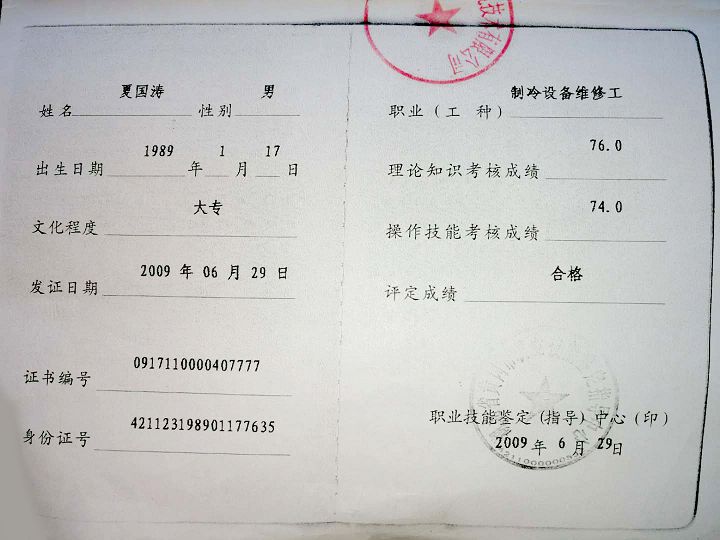 姓名 夏国涛 性别 男
出生日期 1989 年 1 月 17 日
文化程度 大专
发证日期 2009 年 06 月 29 日
证书编号 0917110000407777
身份证号 421123198901177635
技术有限公司
职业（工 种） 制冷设备维修工
理论知识考核成绩 76.0
操作技能考核成绩 74.0
评定成绩 合格
职业技能鉴定(指导)中心(印)
2009 年 6 月 29日